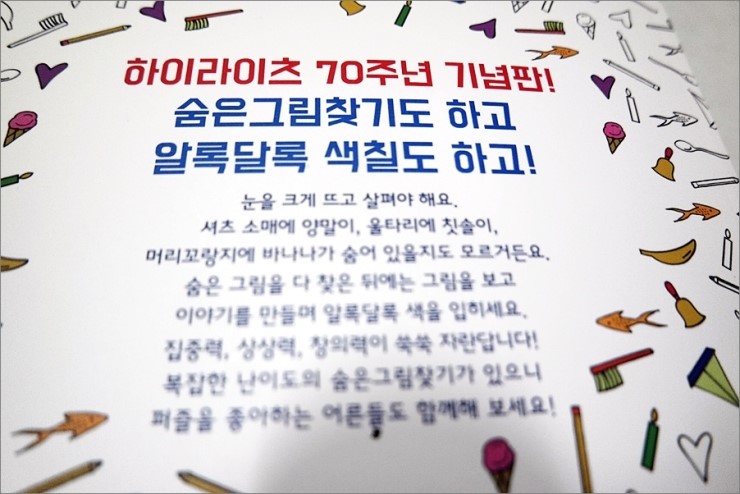 하이라이츠 70주년 기념판!
숨은그림찾기도 하고
알록달록 색칠도 하고!
눈을 크게 뜨고 살펴야 해요.
셔츠 소매에 양말이, 울타리에 칫솔이,
머리꼬랑지에 바나나가 숨어 있을지도 모르거든요.
숨은 그림을 다 찾은 뒤에는 그림을 보고
이야기를 만들며 알록달록 색을 입히세요.
집중력, 상상력, 창의력이 쑥쑥 자란답니다!
복잡한 난이도의 숨은그림찾기가 있으니
퍼즐을 좋아하는 어른들도 함께해 보세요!